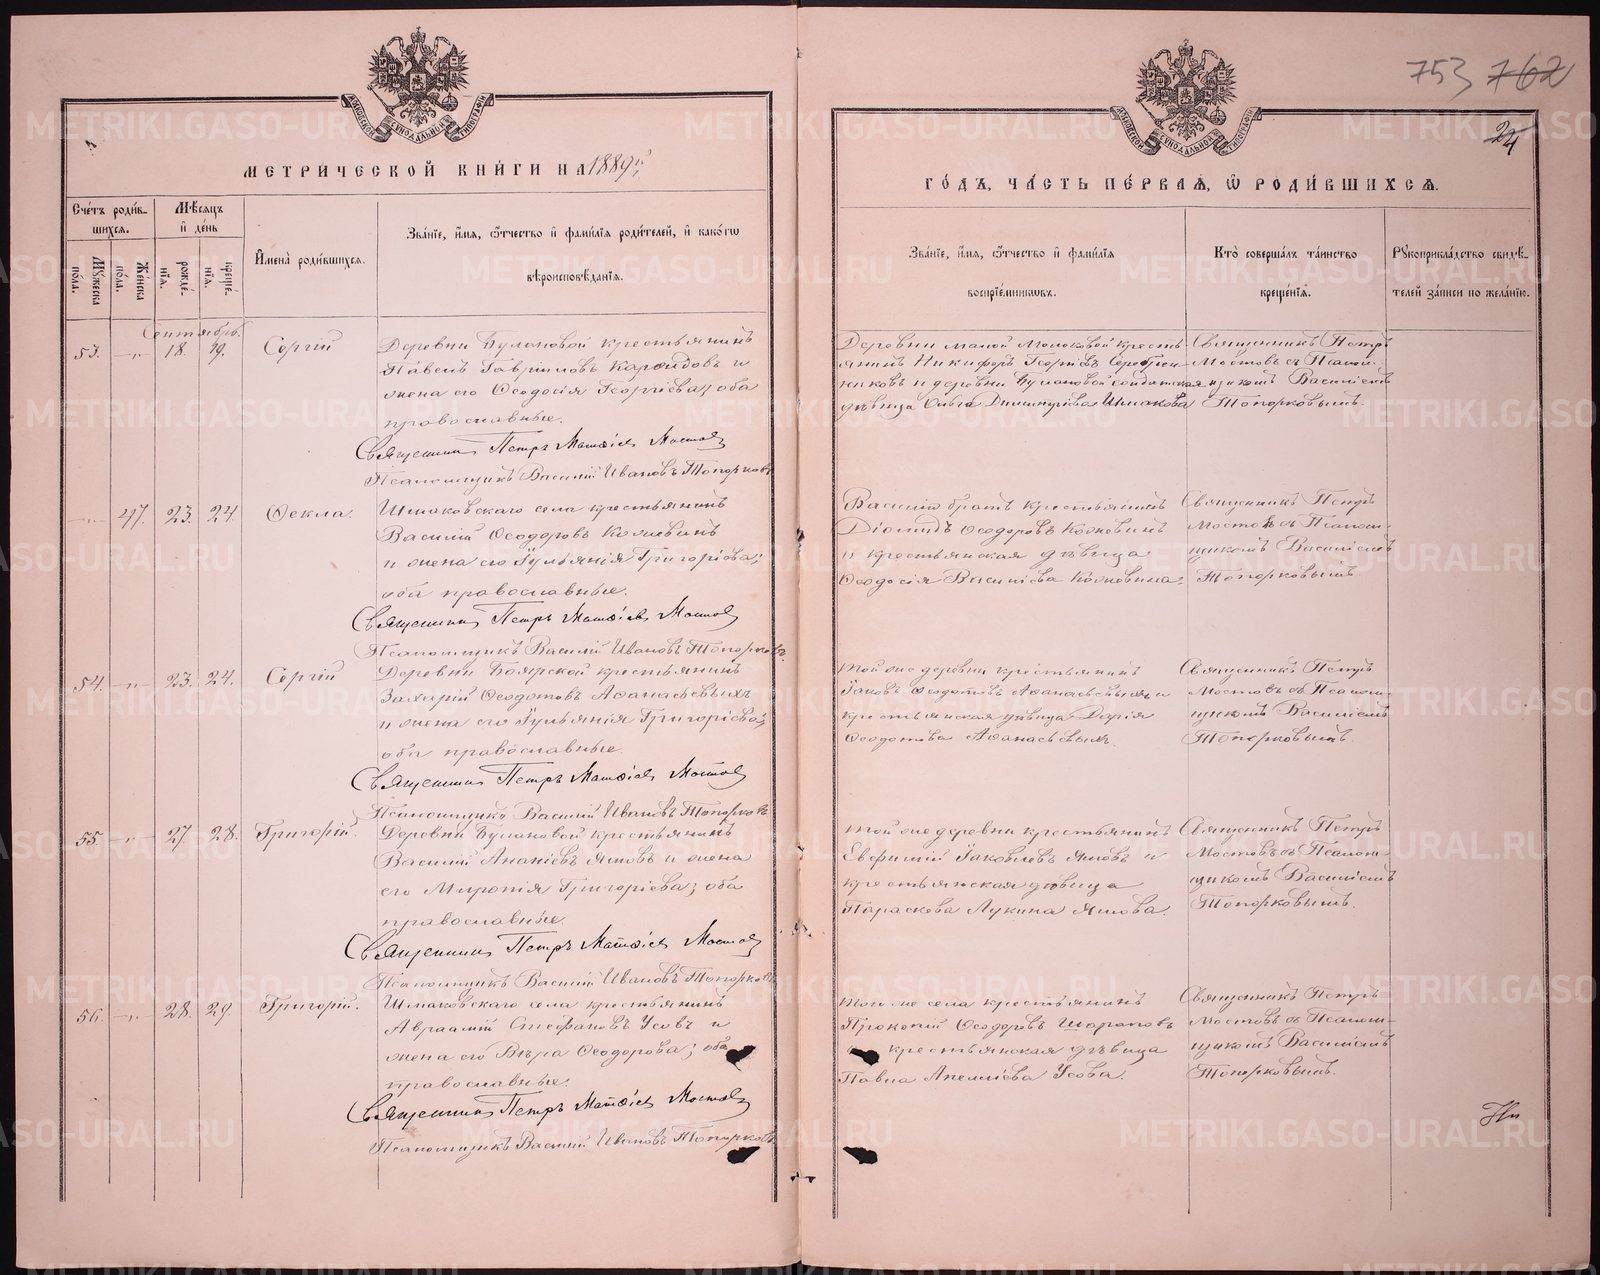 753 762
24
МЕТРИЧЕСКОЙ КНИГИ НА 1889й
ГОДЪ, ЧАСТЬ ПЕРВАЯ, Ѡ РОДИВШИХСЯ.
Счетъ родив-
шихся.
Мужеска пола.
Женска пола.
Мѣсяцъ и день
рожденія.
крещенія.
Имена родившихся.
Званіе, имя, ѿчество и фамилія родителей, и какогѡ
вѣроисповѣданія.
Званіе, имя, ѿчество и фамилія
воспріемниковъ.
Кто совершалъ таинство
крещенія.
Рукоприкладство свидѣ-
телей записи по желанію.
Сентябрь.
53. 18. 19. Сергій
Деревни Булановой крестьянинъ
Павелъ Гавриловъ и
жена его Ѳеодосія Георгіева; оба
православные.
Священникъ Петръ Матѳіевъ Мостовъ
Псаломщикъ Василій Ивановъ Топорковъ
Деревни малой Молоковой кресть-
янинъ Никифоръ Георгіевъ Серебрян-
никовъ и деревни Булановой солдатская
дѣвица Ольга Димитріева Ишмакова
Священникъ Петръ
Мостовъ съ Псалом-
щикомъ Василіемъ
Топорковымъ.
47. 23. 24. Ѳекла.
Шмаковскаго села крестьянинъ
Василій Ѳеодоровъ
и жена его Іуліанія Григоріева;
оба православные.
Священникъ Петръ Матѳіевъ Мостовъ
Псаломщикъ Василій Ивановъ Топорковъ
Василія братъ крестьянинъ
Діомидъ Ѳеодоровъ
и крестьянская дѣвица
Ѳеодосія Василіева
Священникъ Петръ
Мостовъ съ Псалом-
щикомъ Василіемъ
Топорковымъ.
54. 23. 24. Сергій
Деревни Боярской крестьянинъ
Захарій Ѳеодотовъ Аѳанасьевыхъ
и жена его Іуліанія Григоріева;
оба православные.
Священникъ Петръ Матѳіевъ Мостовъ
Псаломщикъ Василій Ивановъ Топорковъ
Той же деревни крестьянинъ
Іаковъ Ѳеодотовъ Аѳанасьевыхъ и
крестьянская дѣвица Дарія
Ѳеодотова Аѳанасьевыхъ.
Священникъ Петръ
Мостовъ съ Псалом-
щикомъ Василіемъ
Топорковымъ.
55. 27. 28. Григорій.
Деревни Булановой крестьянинъ
Василій Ананіевъ Ямовъ и жена
его Миропія Григоріева; оба
православные.
Священникъ Петръ Матѳіевъ Мостовъ
Псаломщикъ Василій Ивановъ Топорковъ
Той же деревни крестьянинъ
Евфимій Іаковлевъ Ямовъ и
крестьянская дѣвица
Параскева Лукина Ямова.
Священникъ Петръ
Мостовъ съ Псалом-
щикомъ Василіемъ
Топорковымъ.
56. 28. 29. Григорій.
Шмаковскаго села крестьянинъ
Авраамій Стефановъ Усовъ и
жена его Вѣра Ѳеодорова; оба
православные.
Священникъ Петръ Матѳіевъ Мостовъ
Псаломщикъ Василій Ивановъ Топорковъ
Того же села крестьянинъ
Прокопій Ѳеодоровъ Шараповъ
и крестьянская дѣвица
Павла Апелліева Усова.
Священникъ Петръ
Мостовъ съ Псалом-
щикомъ Василіемъ
Топорковымъ.